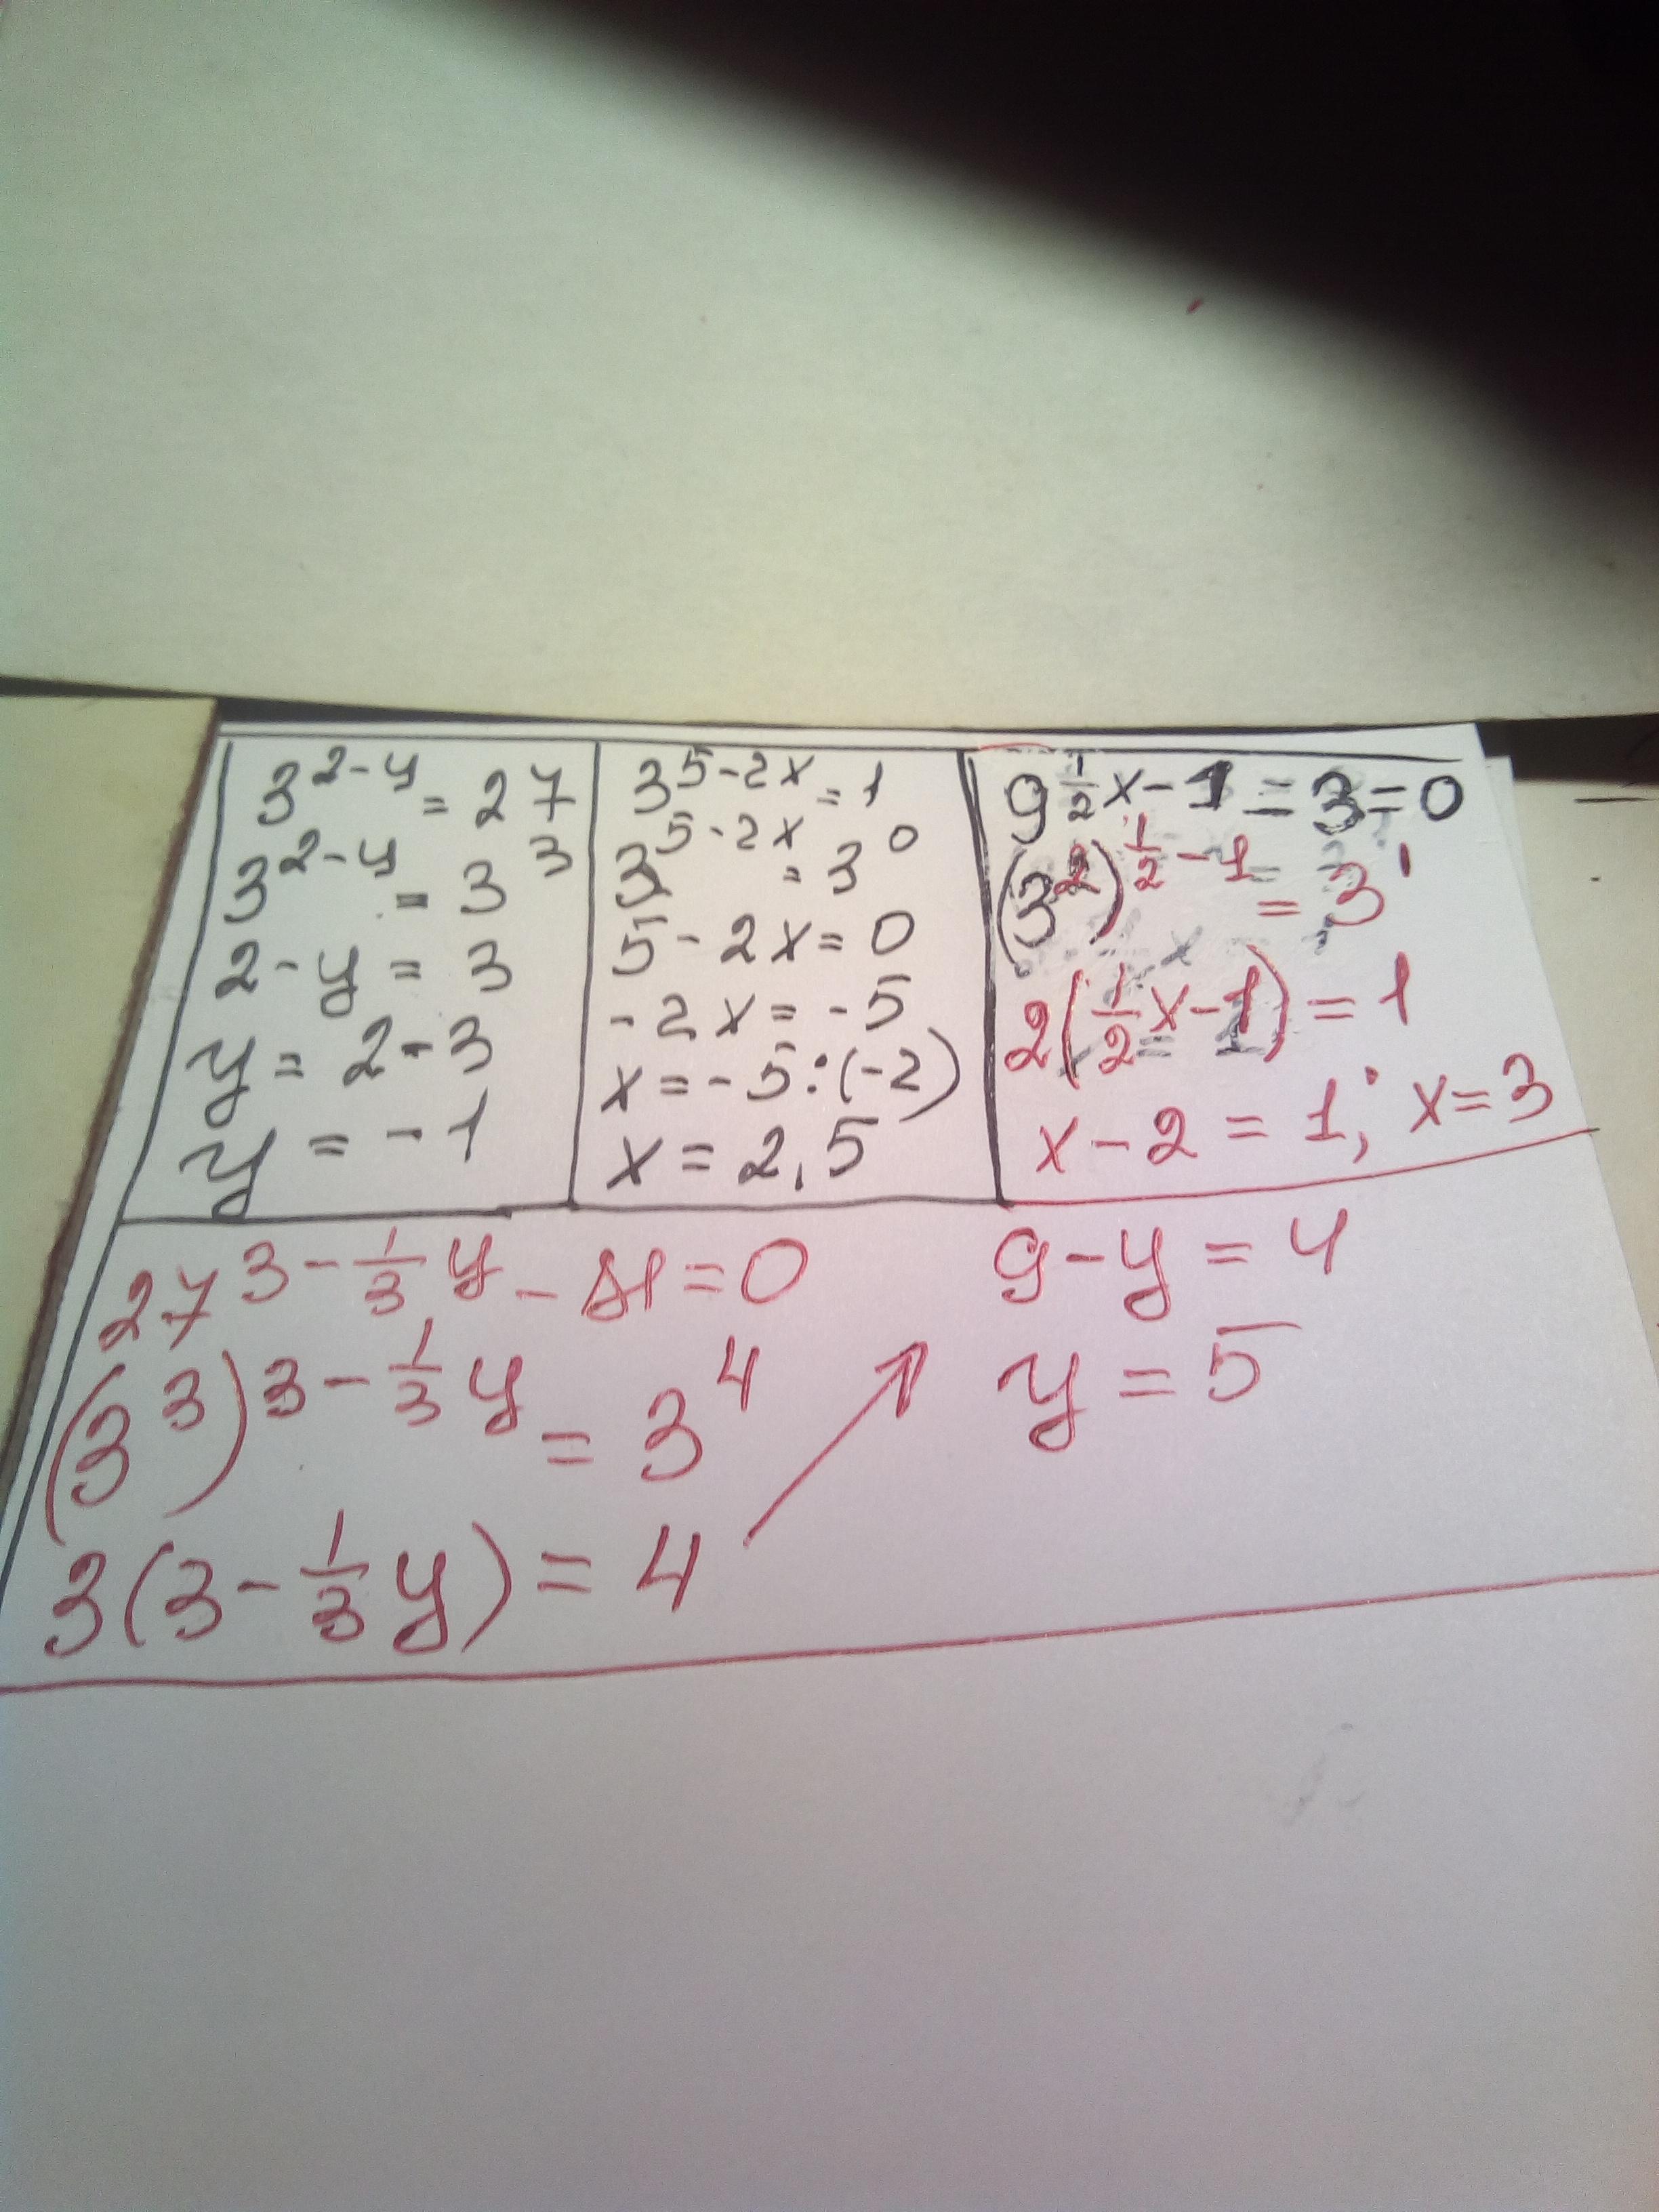 3^{2-y} = 27
3^{2-y} = 3^3
2 - y = 3
y = 2 - 3
y = - 1
3^{5-2x} = 1
3^{5-2x} = 3^0
5 - 2x = 0
- 2x = - 5
x = - 5 : (-2)
x = 2,5
9^{\frac{1}{2}x-1} = 3 = 0
(3^2)^{\frac{1}{2}-1} = 3^1
2(\frac{1}{2}x-1) = 1
x - 2 = 1; x = 3
27^{3-\frac{1}{3}y} - 81 = 0
(3^3)^{3-\frac{1}{3}y} = 3^4
3(3-\frac{1}{3}y) = 4
9 - y = 4
y = 5